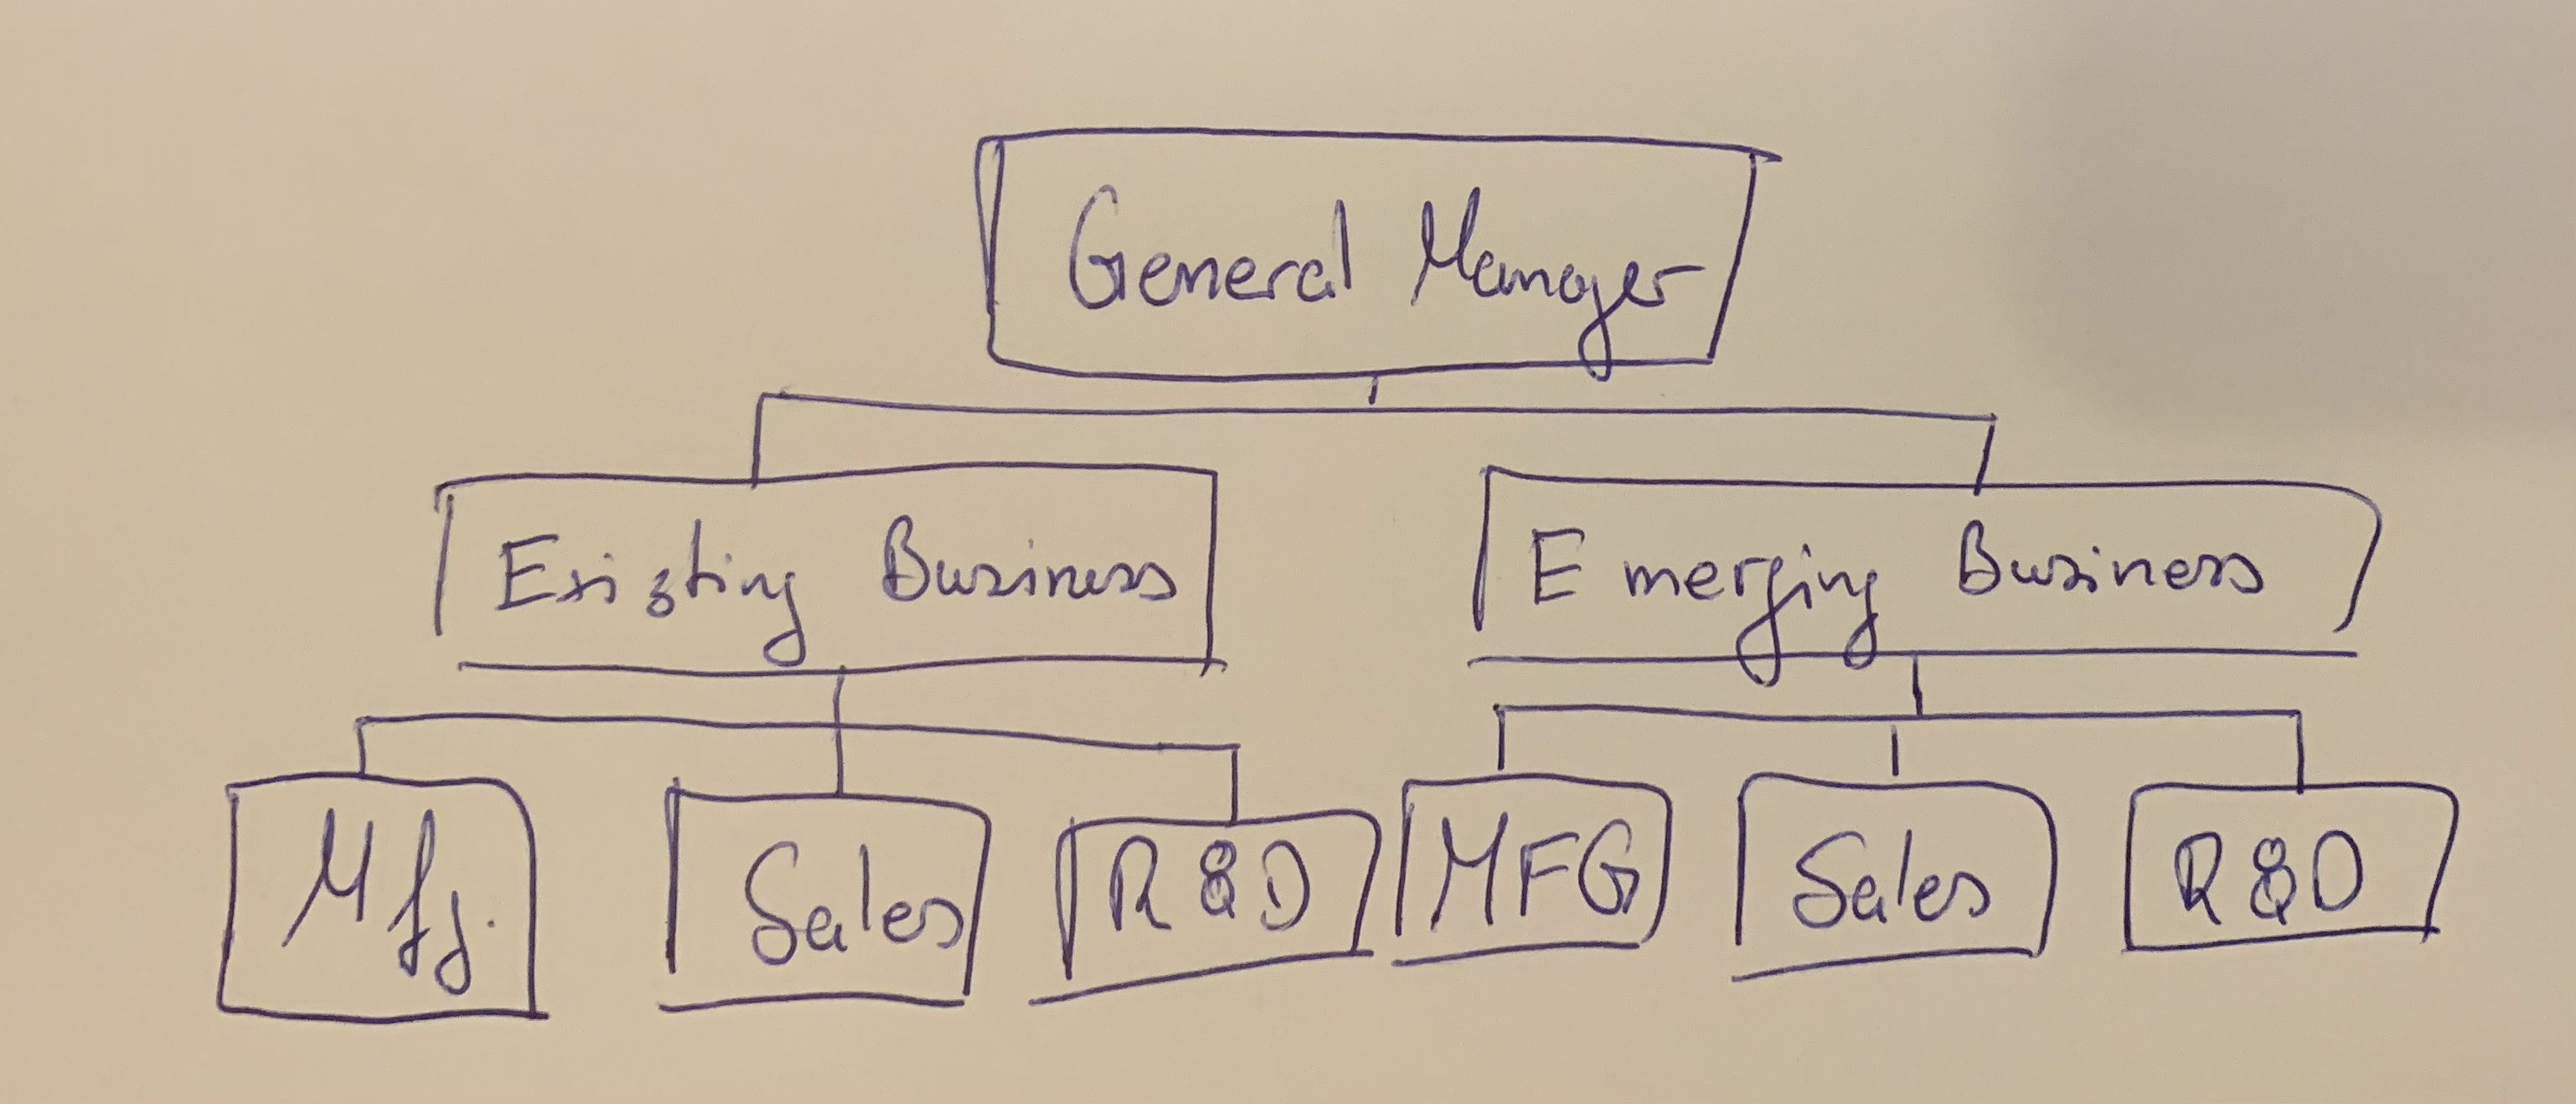 General Manager
Existing Business
Emerging Business
Mfg.
Sales
R&D
MFG
Sales
R&D